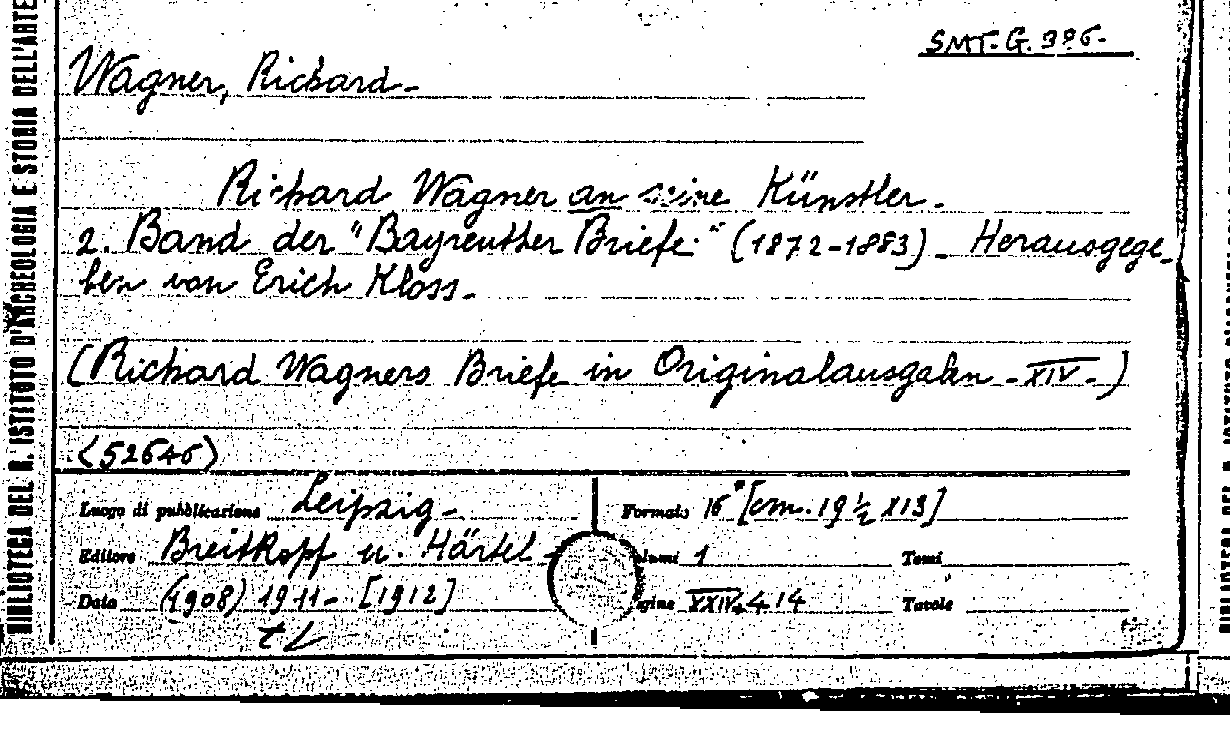 SMT. G. 396.
Wagner, Richard.
Richard Wagner an seine Künstler.
2. Band der "Bayreuther Briefe" (1872-1883). Herausgege-
ben von Erich Kloss.
(Richard Wagners Briefe in Originalausgaben - XIV -)
(52646)
Luogo di pubblicazione Leipzig. Formato 16° [cm. 19 ½ x 13]
Editore Breitkopf u. Härtel 1 Tomi
Data (1908) 1911 - [1912] XXIV, 414 Tavole
BIBLIOTECA DEL R. ISTITUTO D'ARCHEOLOGIA E STORIA DELL'ARTE